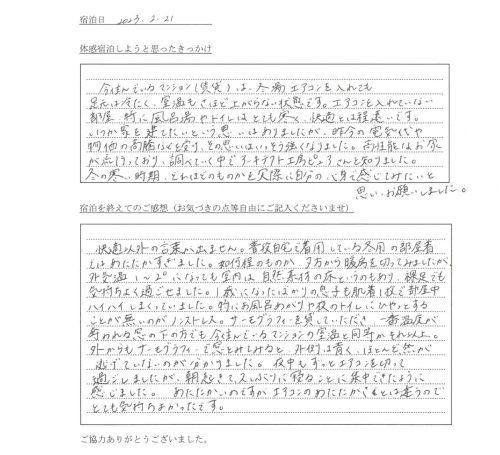 宿泊日 2023. 2. 21
体感宿泊しようと思ったきっかけ
今住んでいるマンション(賃貸)は、冬場エアコンを入れても
足元は冷たく、室温もさほど上がらない状態です。エアコンを入れていない
部屋、特に風呂場やトイレはとても寒く、快適とは程遠いです。
いつか家を建てたいという思いはありましたが、昨今の電気代や
物価の高騰などを受け、その思いはいっそう強くなりました。高性能なお家
が広まっており、調べていく中でアーキテクト工房ピュアさんを知りました。
冬の寒い時期、どれほどのものかを実際に自分の心身で感じてみたいと
思い、お願いしました。
宿泊を終えてのご感想(お気づきの点等自由にご記入くださいませ)
快適以外の言葉が出ません。普段自宅で着用している冬用の部屋着
ではあたたかすぎました。如何程のものか夕方から暖房を切ってみましたが、
外気温1~2°になっても室内は自然素材の床というのもあり、裸足でも
気持ちよく過ごせました。1歳になったばかりの息子も肌着1枚で部屋中
ハイハイしまくっていました。特にお風呂あがりや夜のトイレにひやっとする
ことが無いのがノンストレス。サーモグラフィーを貸していただき一番温度が
奪われる窓の下の方でも今住んでいるマンションの室温と同等かそれ以上。
外からもサーモグラフィーで窓をみてみると、外側は青く、ほとんど熱が
逃げていないのが分かりました。夜中もずっとエアコンを切って
過ごしましたが、朝起きて久しぶりに寝ることに集中できたように
感じました。あたたかいのですがエアコンのあたたかさとは違うので
とても気持ちよかったです。
ご協力ありがとうございました。